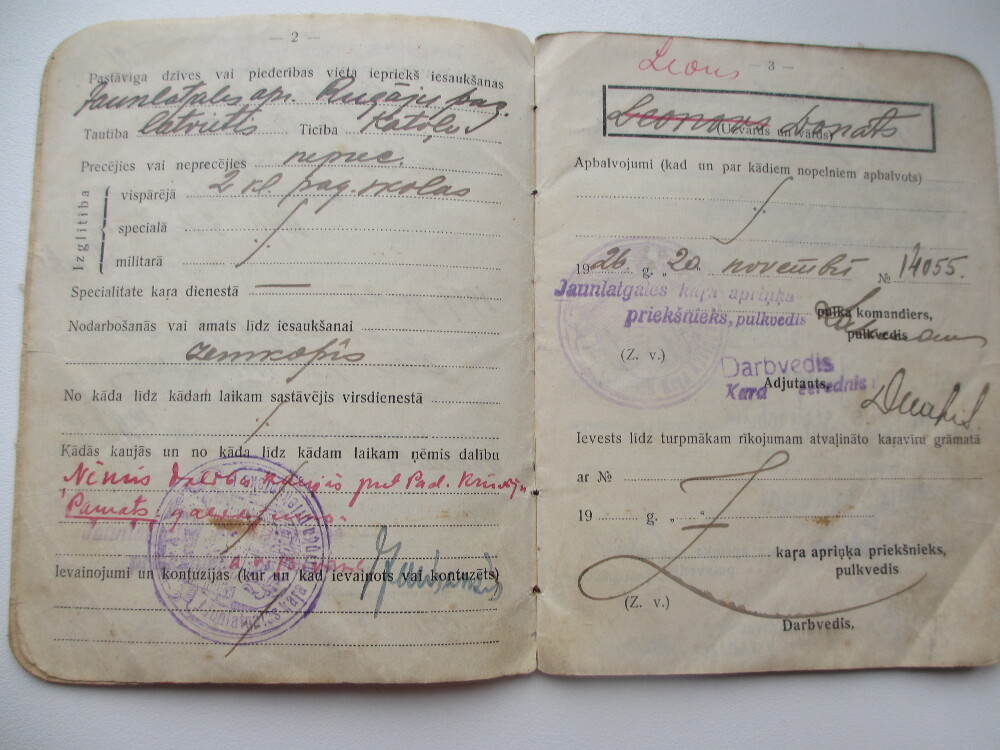 — 2 —
Pastāvīga dzīves vai piederības vieta iepriekš iesaukšanas
Jaunlatgales apr. Rugāju pag.
Tautība latvietis Ticība Katoļu
Precējies vai neprecējies neprec.
Izglītība
vispārējā 2 kl. pag. skolas
speciālā
militarā
Specialitate kaŗa dienestā —
Nodarbošanās vai amats līdz iesaukšanai
zemkopis
No kāda līdz kādam laikam sastāvējis virsdienestā
Kādās kaujās un no kāda līdz kādam laikam ņēmis dalību
Pamats:
Ievainojumi un kontuzijas (kur un kad ievainots vai kontuzēts)
— 3 —
Leons
Leonars Donats
(Uzvārds un vārds)
Apbalvojumi (kad un par kādiem nopelniem apbalvots)
1926. g. 20. novembrī № 14055.
Jaunlatgales kaŗa apriņķa
priekšnieks, pulkvedis
pulka komandiers,
pulkvedis
(Z. v.)
Darbvedis
Adjutants,
Kara ierēdnis
Ievests līdz turpmākam rīkojumam atvaļināto kaŗavīru grāmatā
ar №
19 g. „ “
kaŗa apriņķa priekšnieks,
pulkvedis
(Z. v.)
Darbvedis,